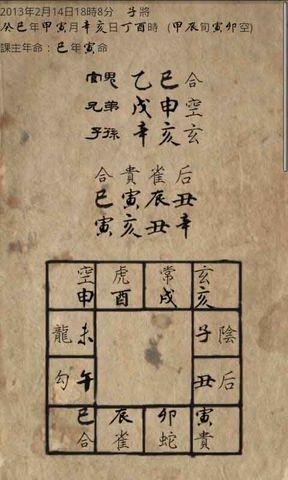 2013年2月14日18時8分 子將
癸巳年甲寅月辛亥日丁酉時 (甲辰旬寅卯空)
課主年命：巳年寅命
官鬼 乙巳合
兄弟 戊申空
子孫 辛亥玄
合貴雀后
巳寅辰丑
寅亥丑辛
空虎常玄
申酉戌亥
龍未 子陰
勾午 丑后
巳辰卯寅
合雀蛇貴